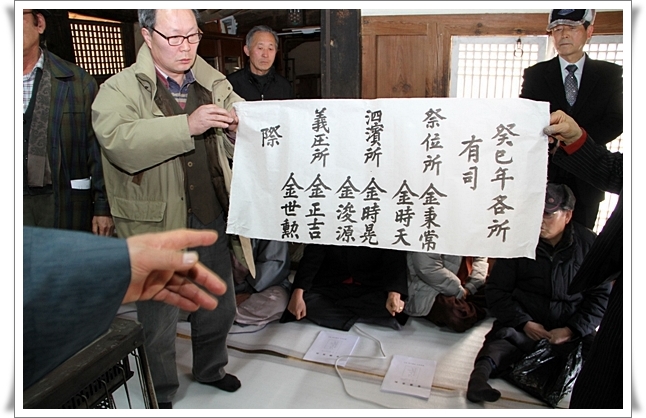 癸巳年各所
有司
祭位所 金秉常
金時天
泗濱所 金時晃
金浚源
義庄所 金正吉
金世勲
際